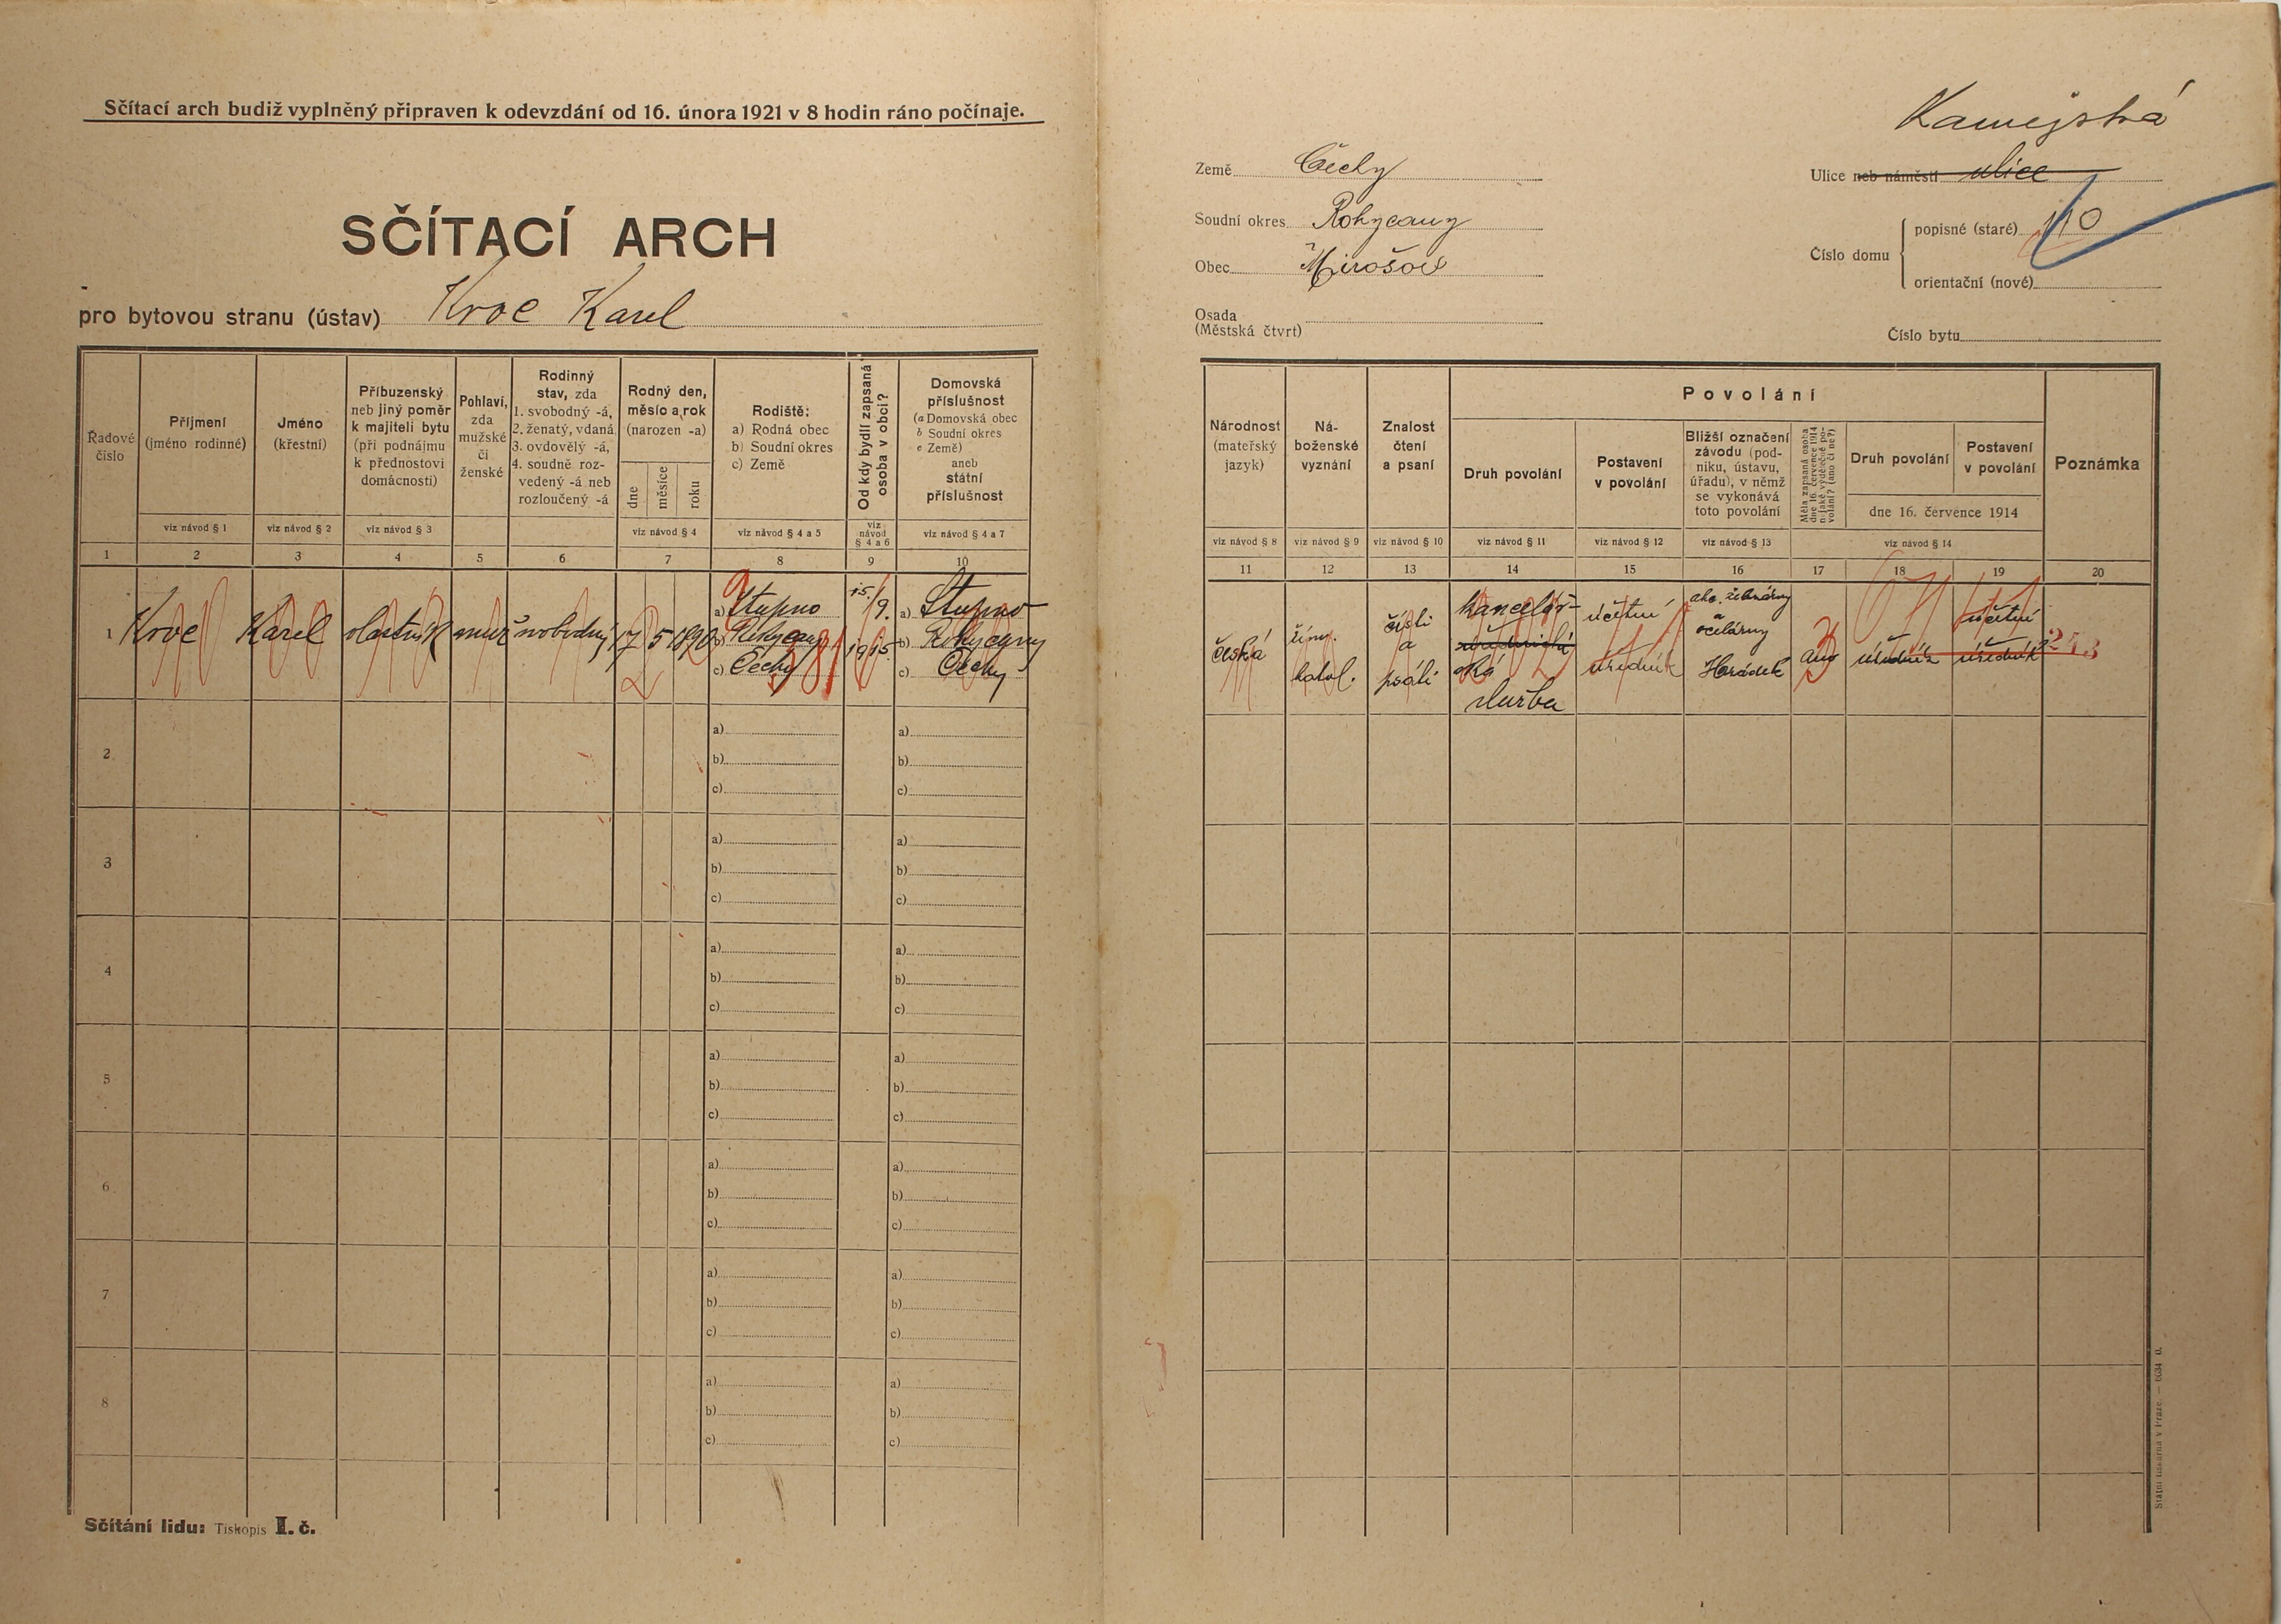 Sčítací arch budiž vyplněný připraven k odevzdání od 16. února 1921 v 8 hodin ráno počínaje.
SČÍTACÍ ARCH
pro bytovou stranu (ústav) Kroc Karel
Řadové číslo
Příjmení
(jméno rodinné)
viz návod § 1
Jméno
(křestní)
viz návod § 2
Příbuzenský
neb jiný poměr
k majiteli bytu
(při podnájmu
k přednostovi
domácnosti)
viz návod § 3
Pohlaví,
zda
mužské
či
ženské
Rodinný
stav, zda
1. svobodný -á,
2. ženatý, vdaná
3. ovdovělý -á,
4. soudně roz-
vedený -á neb
rozloučený -á
Rodný den,
měsíc a rok
(narozen -a)
dne
měsíce
roku
viz návod § 4
Rodiště:
a) Rodná obec
b) Soudní okres
c) Země
viz návod § 4 a 5
Od kdy bydlí zapsaná
osoba v obci?
viz
návod
§ 4 a 6
Domovská
příslušnost
(a Domovská obec
b Soudní okres
c Země)
aneb
státní
příslušnost
viz návod § 4 a 7
1 2 3 4 5 6 7 8 9 10
1 Kroc Karel vlastník muž svobodný 17 5 1890
a) Stupno
b) Rokycany
c) Čechy
15./9.
1915
a) Stupno
b) Rokycany
c) Čechy
2
a)
b)
c)
a)
b)
c)
3
a)
b)
c)
a)
b)
c)
4
a)
b)
c)
a)
b)
c)
5
a)
b)
c)
a)
b)
c)
6
a)
b)
c)
a)
b)
c)
7
a)
b)
c)
a)
b)
c)
8
a)
b)
c)
a)
b)
c)
Sčítání lidu: Tiskopis I. č.
Země Čechy
Soudní okres Rokycany
Obec Mirošov
Osada
(Městská čtvrt)
Ulice neb náměstí ulice
Číslo domu
popisné (staré) 110
orientační (nové)
Číslo bytu
Národnost
(mateřský
jazyk)
viz návod § 8
Ná-
boženské
vyznání
viz návod § 9
Znalost
čtení
a psaní
viz návod § 10
Povolání
Druh povolání
viz návod § 11
Postavení
v povolání
viz návod § 12
Bližší označení
závodu (pod-
niku, ústavu,
úřadu), v němž
se vykonává
toto povolání
viz návod § 13
Měla zapsaná osoba
dne 16. července 1914
nějaké výdělečné po-
volání? (ano či ne?)
Druh povolání
Postavení
v povolání
dne 16. července 1914
viz návod § 14
Poznámka
11 12 13 14 15 16 17 18 19 20
česká
řím.
katol.
čísti
a
psáti
kancelář-
ská
služba
účetní
úředník
akc. železárny
ocelárny
Hrádek
ano
úředník
účetní
úředník
Státní tiskárna v Praze. — 6634 0.